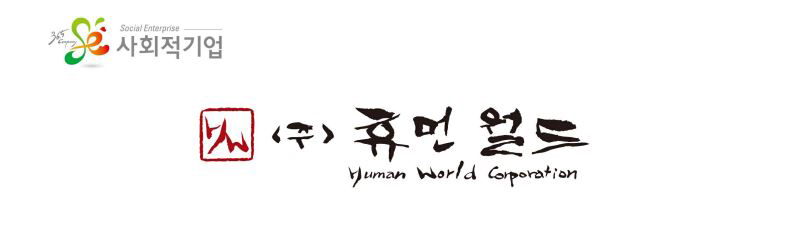 Social Enterprise
365 Company
사회적기업
HW (주) 휴먼 월드
Human World Corporation